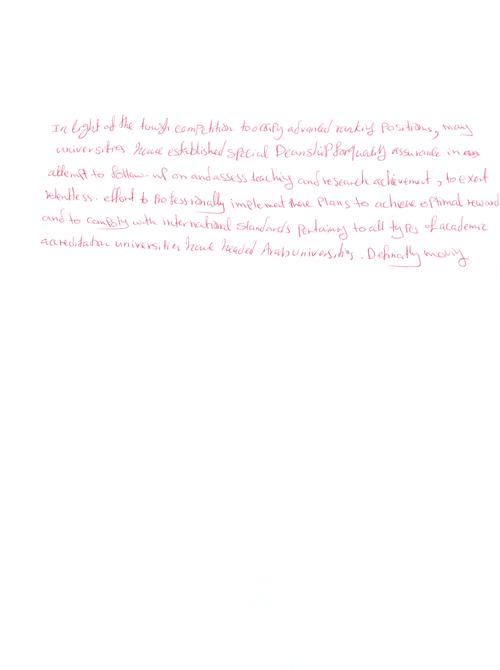 In light of the tough competition to occupy advanced ranking Positions, many
universities have established special Deanship for quality assurance in an
attempt to follow-up on and assess teaching and research achievement, to exert
relentless. effort to Professionally implement these Plans to achieve optimal reward
and to comply with international standards pertaining to all types of academic
accreditation universities have headed Arab universities. Definactly moving